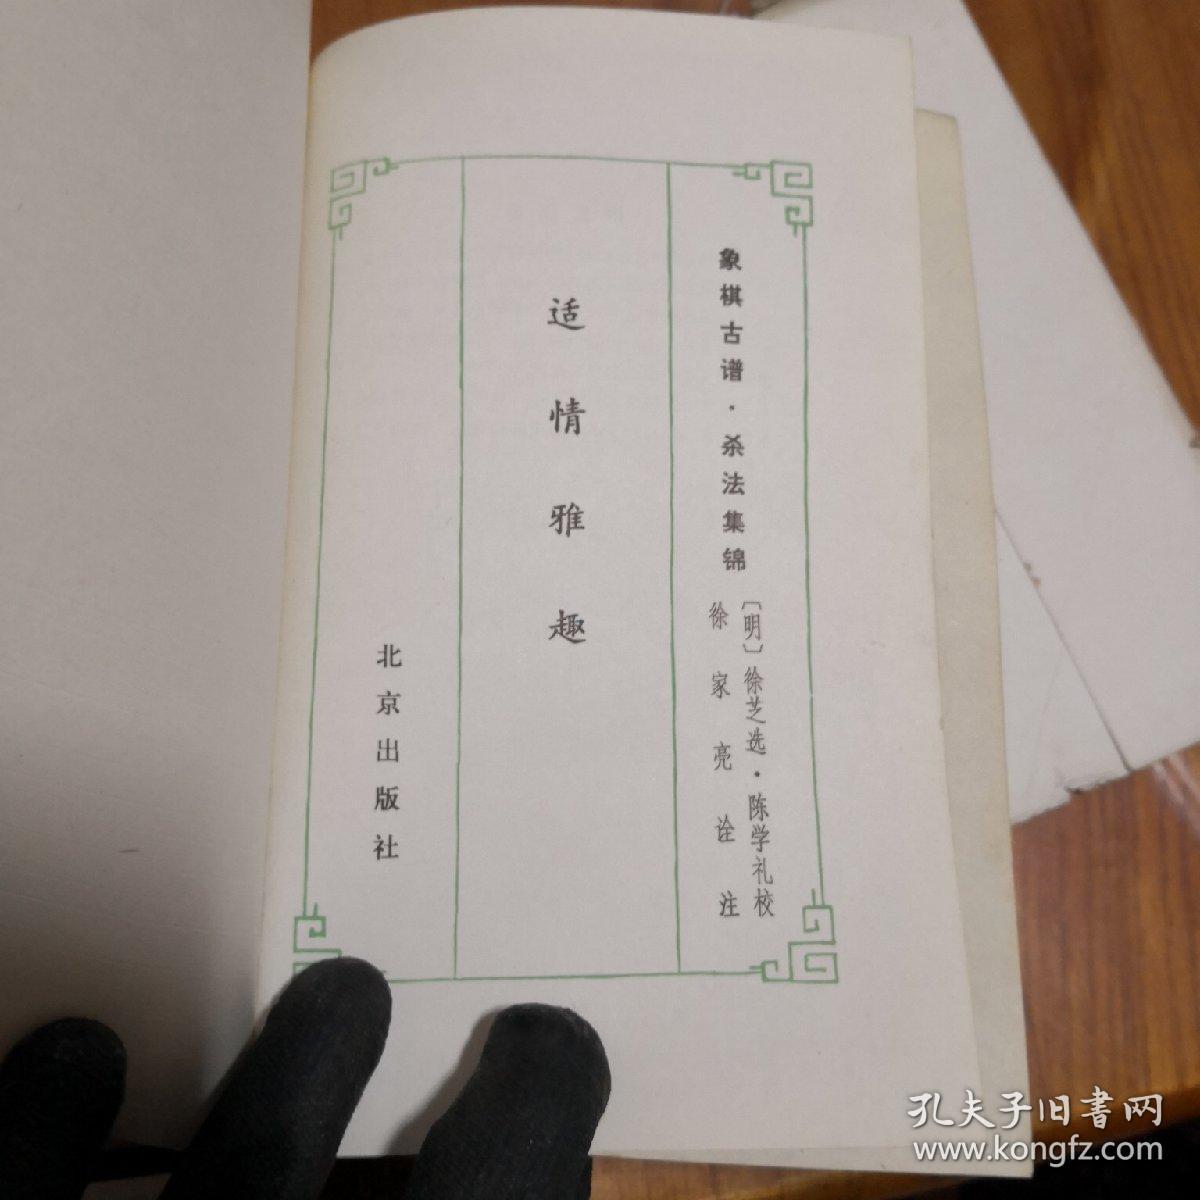 象棋古谱·杀法集锦
〔明〕徐芝选·陈学礼校
徐家亮诠注
适情雅趣
北京出版社
孔夫子旧書网
www.kongfz.com